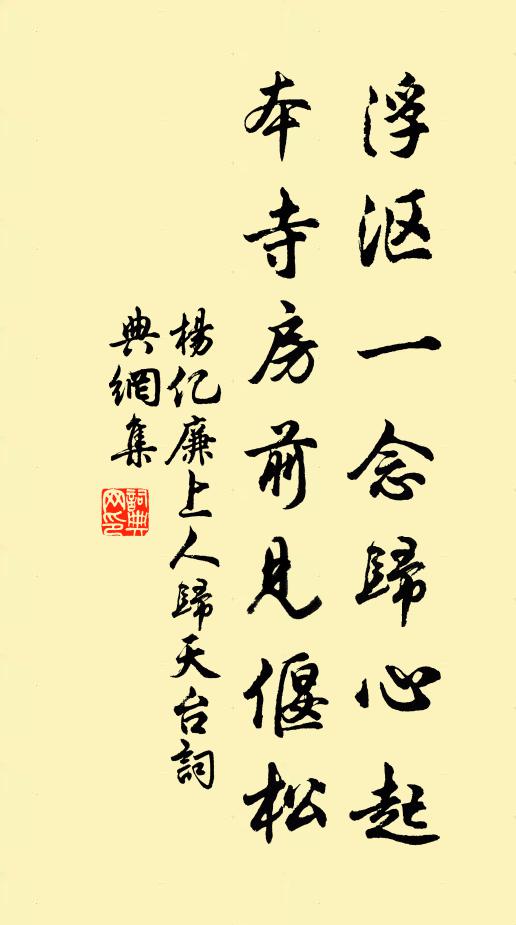 浮沤一念歸心起
本寺房前見偃松
楊亿廉上人歸天台詞
典網集
詞典网印